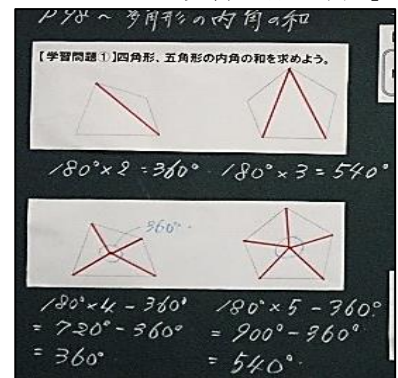 P98～ 多角形の内角の和
【学習問題①】四角形、五角形の内角の和を求めよう。
180°×2=360° 180°×3=540°
360°
180°×4-360°
=720°-360°
=360°
180°×5-360°
=900°-360°
=540°